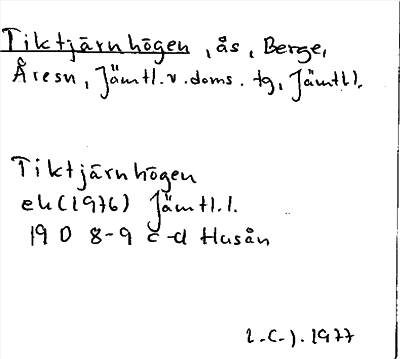 Tiktjärnhögen, ås, Berge,
Åresn, Jämtl.v.doms.tg, Jämtl l.
Tiktjärnhögen
ek(1976) Jämtl.l.
19 D 8-9 c-d Husån
1977